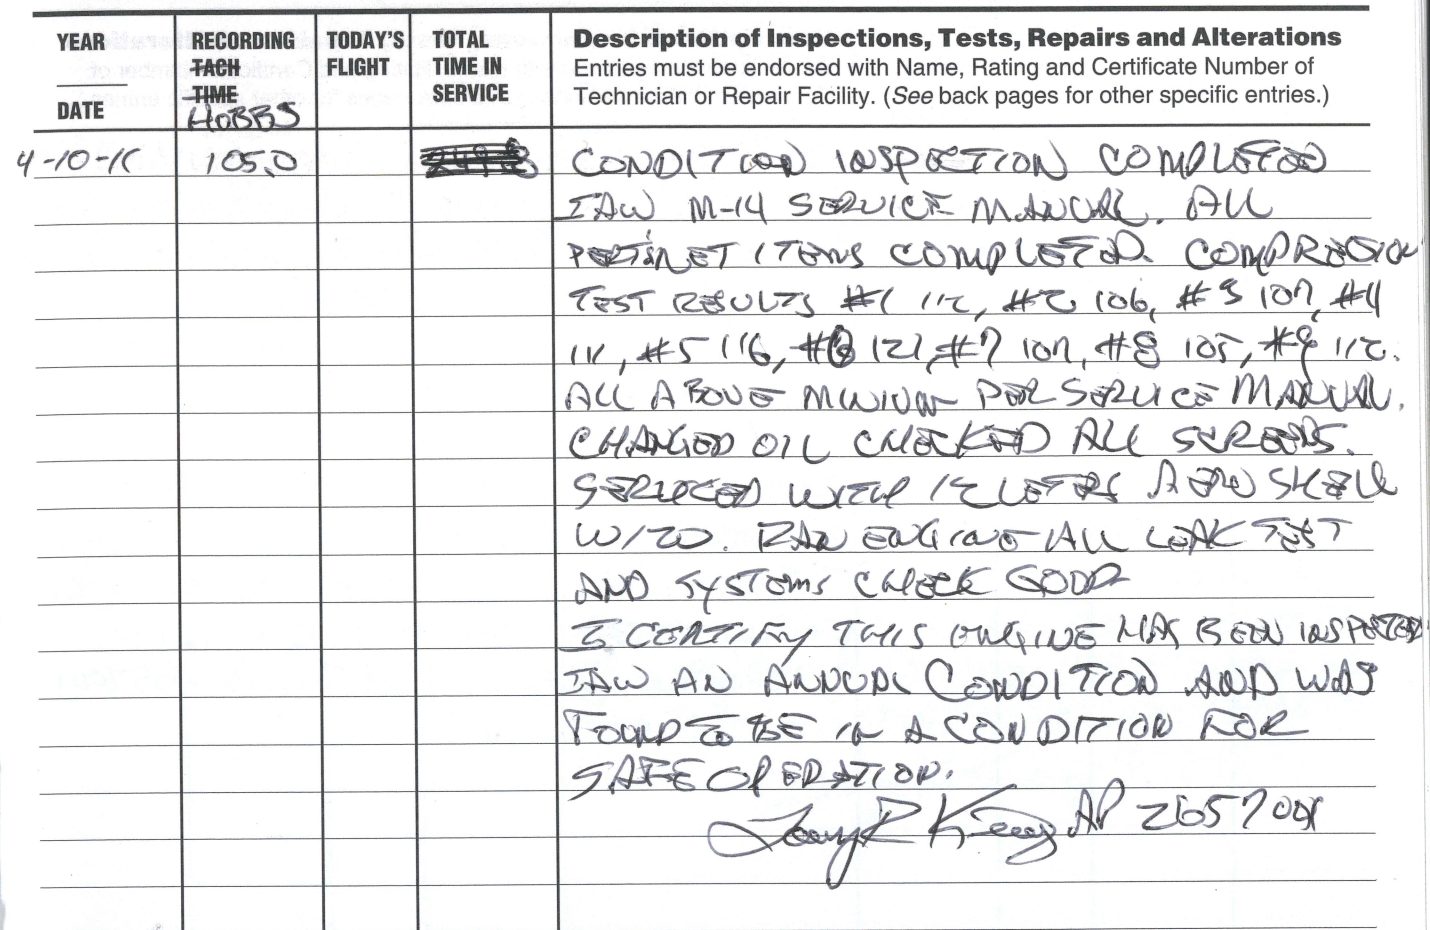 YEAR
DATE
RECORDING
TACH
TIME
HOBBS
TODAY'S
FLIGHT
TOTAL
TIME IN
SERVICE
Description of Inspections, Tests, Repairs and Alterations
Entries must be endorsed with Name, Rating and Certificate Number of
Technician or Repair Facility. (See back pages for other specific entries.)
105.0 CONDITION INSPECTION COMPLETED
IAW M-14 SERVICE MANUAL. ALL
ITEMS COMPLETED. COMPRESSION
TEST RESULTS #1 112, #2 106, #3 107, #4
111, #5 116, #6 121, #7 107, #8 105, #9 112.
ALL ABOVE PER SERVICE MANUAL.
CHANGED OIL CHECKED ALL SCREENS.
SERVICED WITH 12 AERO SHELL
W/20. RAN ENGINE ALL LEAK TEST
AND SYSTEMS CHECK GOOD
I CERTIFY THIS ENGINE HAS BEEN INSPECTED
IAW AN ANNUAL CONDITION AND WAS
FOUND TO BE IN A CONDITION FOR
SAFE OPERATION.
AP